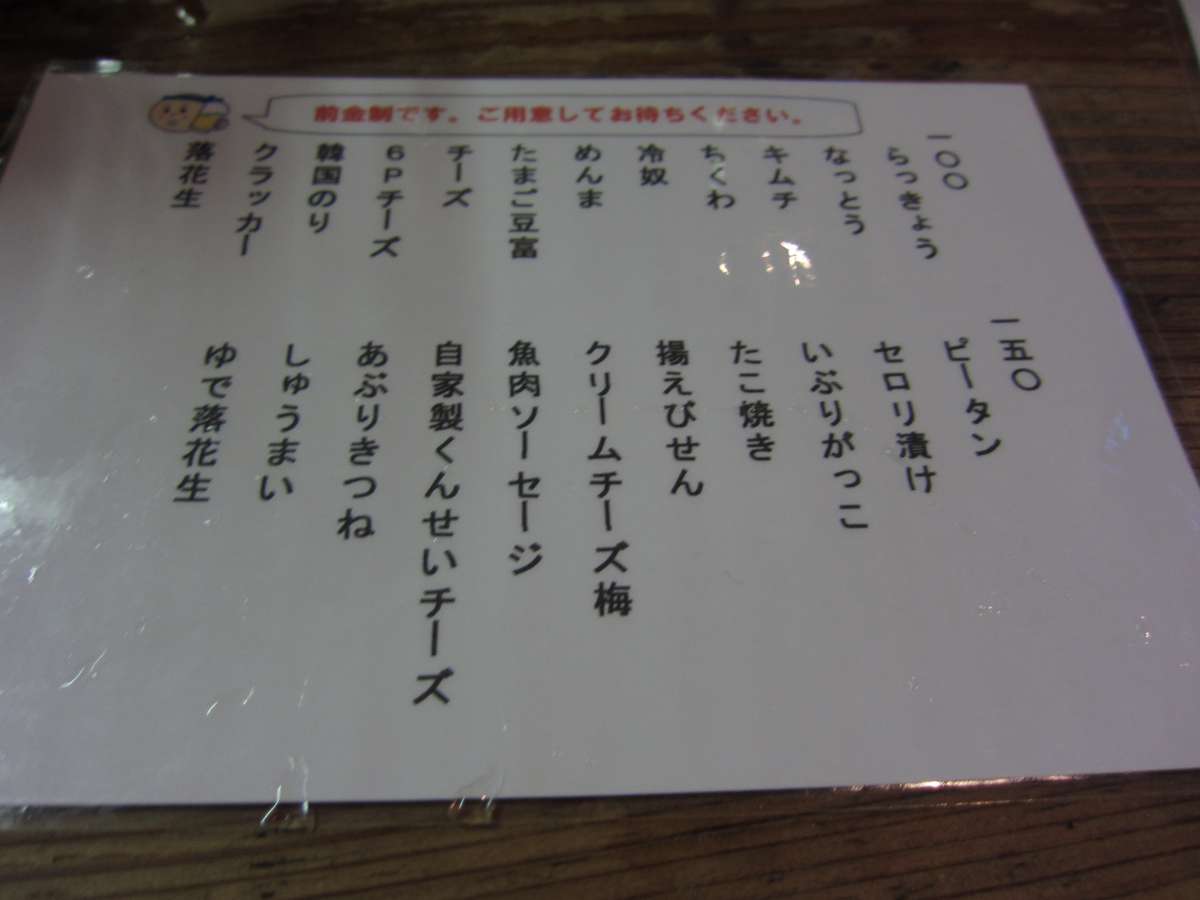 前金制です。ご用意してお待ちください。
一〇〇
らっきょう
なっとう
キムチ
ちくわ
冷奴
めんま
たまご豆富
チーズ
6Pチーズ
韓国のり
クラッカー
落花生
一五〇
ピータン
セロリ漬け
いぶりがっこ
たこ焼き
揚えびせん
クリームチーズ梅
魚肉ソーセージ
自家製くんせいチーズ
あぶりきつね
しゅうまい
ゆで落花生